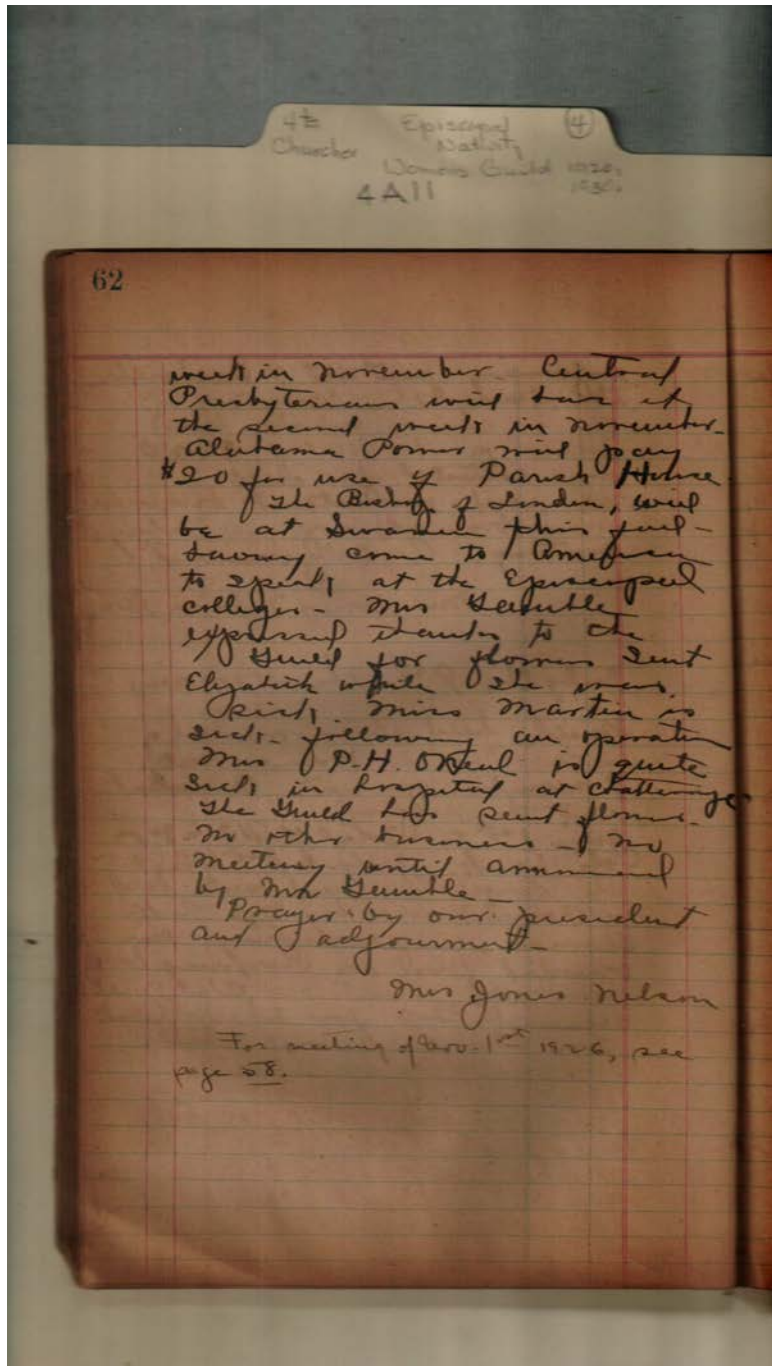 4th Episcopal ④
Churches Nativity
Womens Guild 1920s
1930s
4A11
62
week in November. Central
Presbyterians will have it
the second week in November.
Alabama Power will pay
$20 for use of Parish House
The Bishop of London, will
be at Swanee this fall -
having come to American
to speak at the Episcopal
colleges - Mrs Gamble
expressed thanks to the
Guild for flowers sent
Elizabeth while she was
sick. Miss Martin is
sick - following an operation
Mrs P.H. O'Neal is quite
sick in hospital at Chattanooga
The Guild has sent flowers.
No other business - no
meeting until announced
by Mrs Gamble -
Prayer by our president
and adjourment -
Mrs Jones Nelson
For meeting of Nov. 1st 1926, see
page 58.